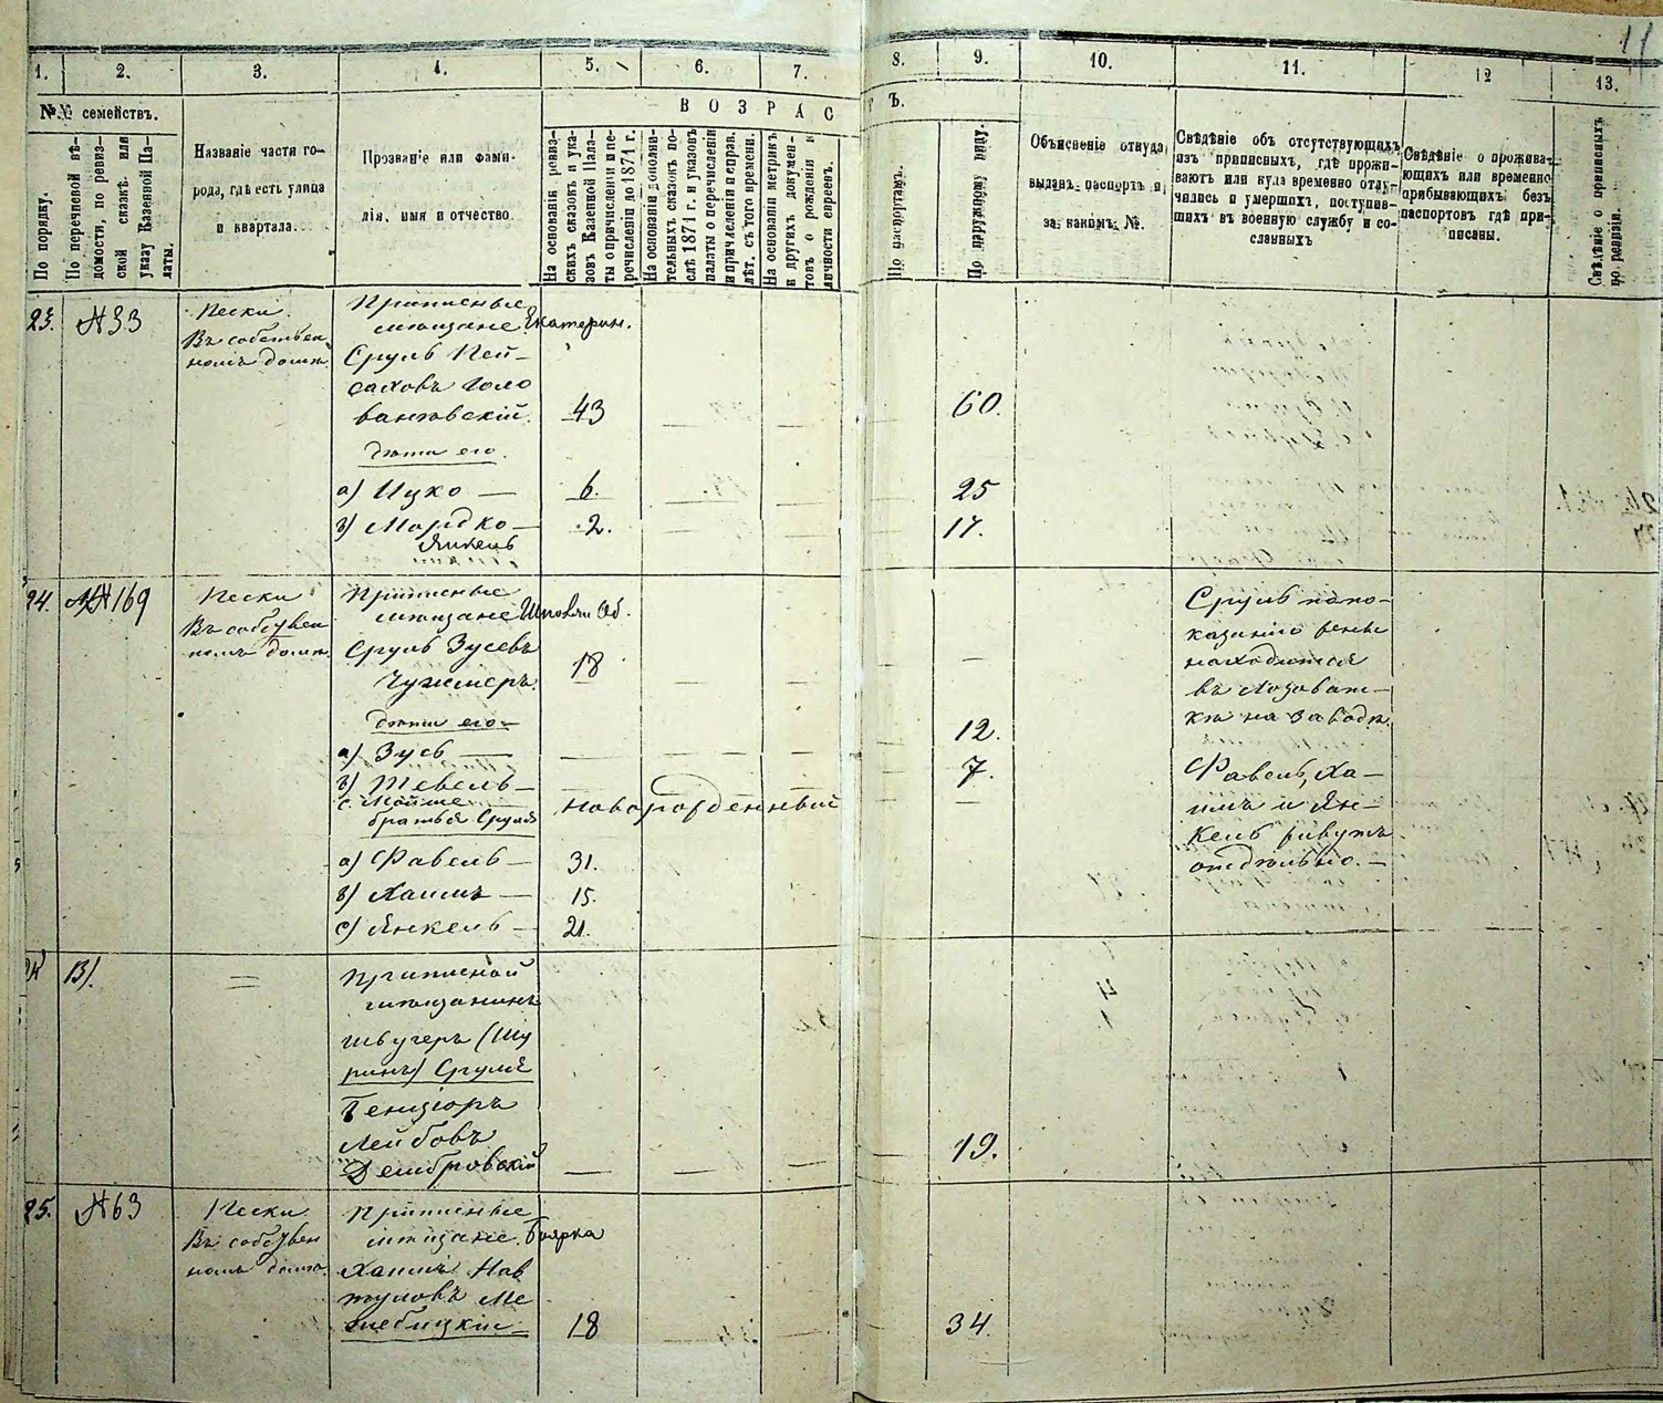 11
1. 2. 3. 4. 5. 6. 7. 8. 9. 10. 11. 12 13.
№.№ семействъ.
По порядку.
По перечневой вѣ-
домости, по ревиз-
ской сказкѣ или
указу Казенной Па-
латы.
Названіе части го-
рода, гдѣ есть улица
и квартала.
Прозваніе или фами-
лія, имя и отчество.
ВОЗРАСТЪ.
На основаніи ревиз-
скихъ сказокъ и ука-
зовъ Казенной Пала-
ты о причисленіи и пе-
речисленіи до 1871 г.
На основаніи дополни-
тельныхъ сказокъ по-
слѣ 1871 г. и указовъ
палаты о перечисленіи
и причисленіи и справ.
лѣт. съ того времени.
На основаніи метрикъ
и другихъ докумен-
товъ о рожденіи и
личности евреевъ.
По паспортамъ.
По наружному виду.
Объясненіе откуда
выданъ паспортъ и
за какимъ №.
Свѣдѣніе объ отсутствующихъ
изъ приписныхъ, гдѣ прожи-
ваютъ или куда временно отлу-
чились и умершихъ, поступив-
шихъ въ военную службу и со-
сланныхъ
Свѣдѣніе о прожива-
ющихъ или временно
прибывающихъ безъ
паспортовъ гдѣ при-
писаны.
Свѣдѣніе о приписныхъ
по ревизіи.
23. №33 Пески.
Въ собствен
номъ домѣ.
Приписные
мѣщане Екатерин.
Сруль Пей-
саховъ Голо
ванѣвскій. 43 60.
дѣти его.
а) Ицко — 6. 25
в) Мордко — 2. 17.
Янкель
24. №169 Пески
Въ собствен
номъ домѣ.
Приписные
мѣщане
Сруль Зусевъ 18
Чужмеръ.
дѣти его
а) Зусь — 12.
в) Тевель — 7.
с. Мойше новорожденный
братья Сруля
а) Фавель — 31.
в) Хаимъ — 15.
с) Янкель — 21.
Сруль по по-
казанію
находится
въ Лозоват-
кѣ на заводѣ.
Фавель, Ха-
имъ и Ян-
кель живутъ
отдѣльно. —
В).
Приписной
мѣщанинъ
швугеръ (Шу
ринъ) Сруля
Бенціоръ
Лейбовъ
Дембровскій 19.
25. №63 Пески
Въ собствен
номъ домѣ.
Приписные
мѣщане. Боярка
Хаимъ Наф
туловъ Ме
жебицкій 18 34.